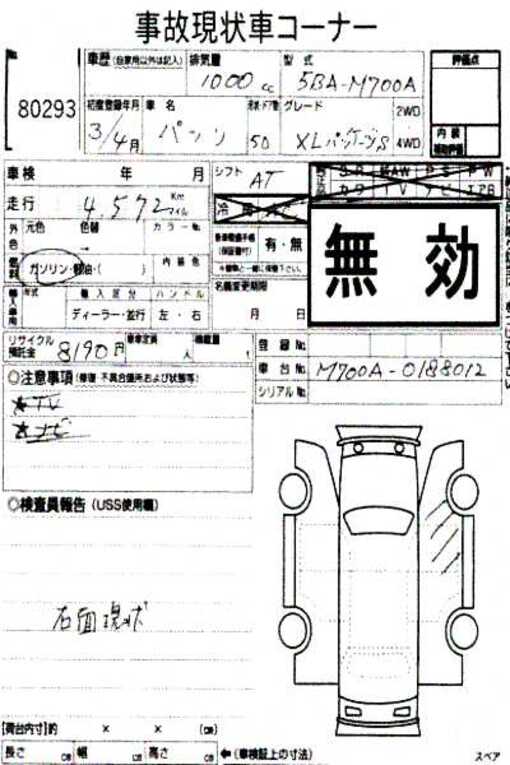 事故現状車コーナー
車歴(自家用以外は記入) 排気量 型式 評価点
80293 1000cc 5BA-M700A
初度登録年月 車名 グレード 2WD
3/4月 パッソ 50 XLパッケージS 4WD
内装
車検 年 月 シフト AT
走行 4,572 Km マイル
外色 元色 色替 カラーNo
→
有・無
ガソリン・軽油・( ) 内装色
無効
名義変更期限
月 日
輸入区分 ハンドル
ディーラー・並行 左・右
リサイクル預託金 8190円 車両定員 人 積載量 t
登録No.
車台No. M700A-0188012
シリアルNo.
◎注意事項(修復・不具合箇所および状態等)
★TV
★ナビ
◎検査員報告(USS使用欄)
右面現状
【荷台内寸】約 × × (cm)
長さ cm 幅 cm 高さ cm ←(車検証上の寸法)
スペア